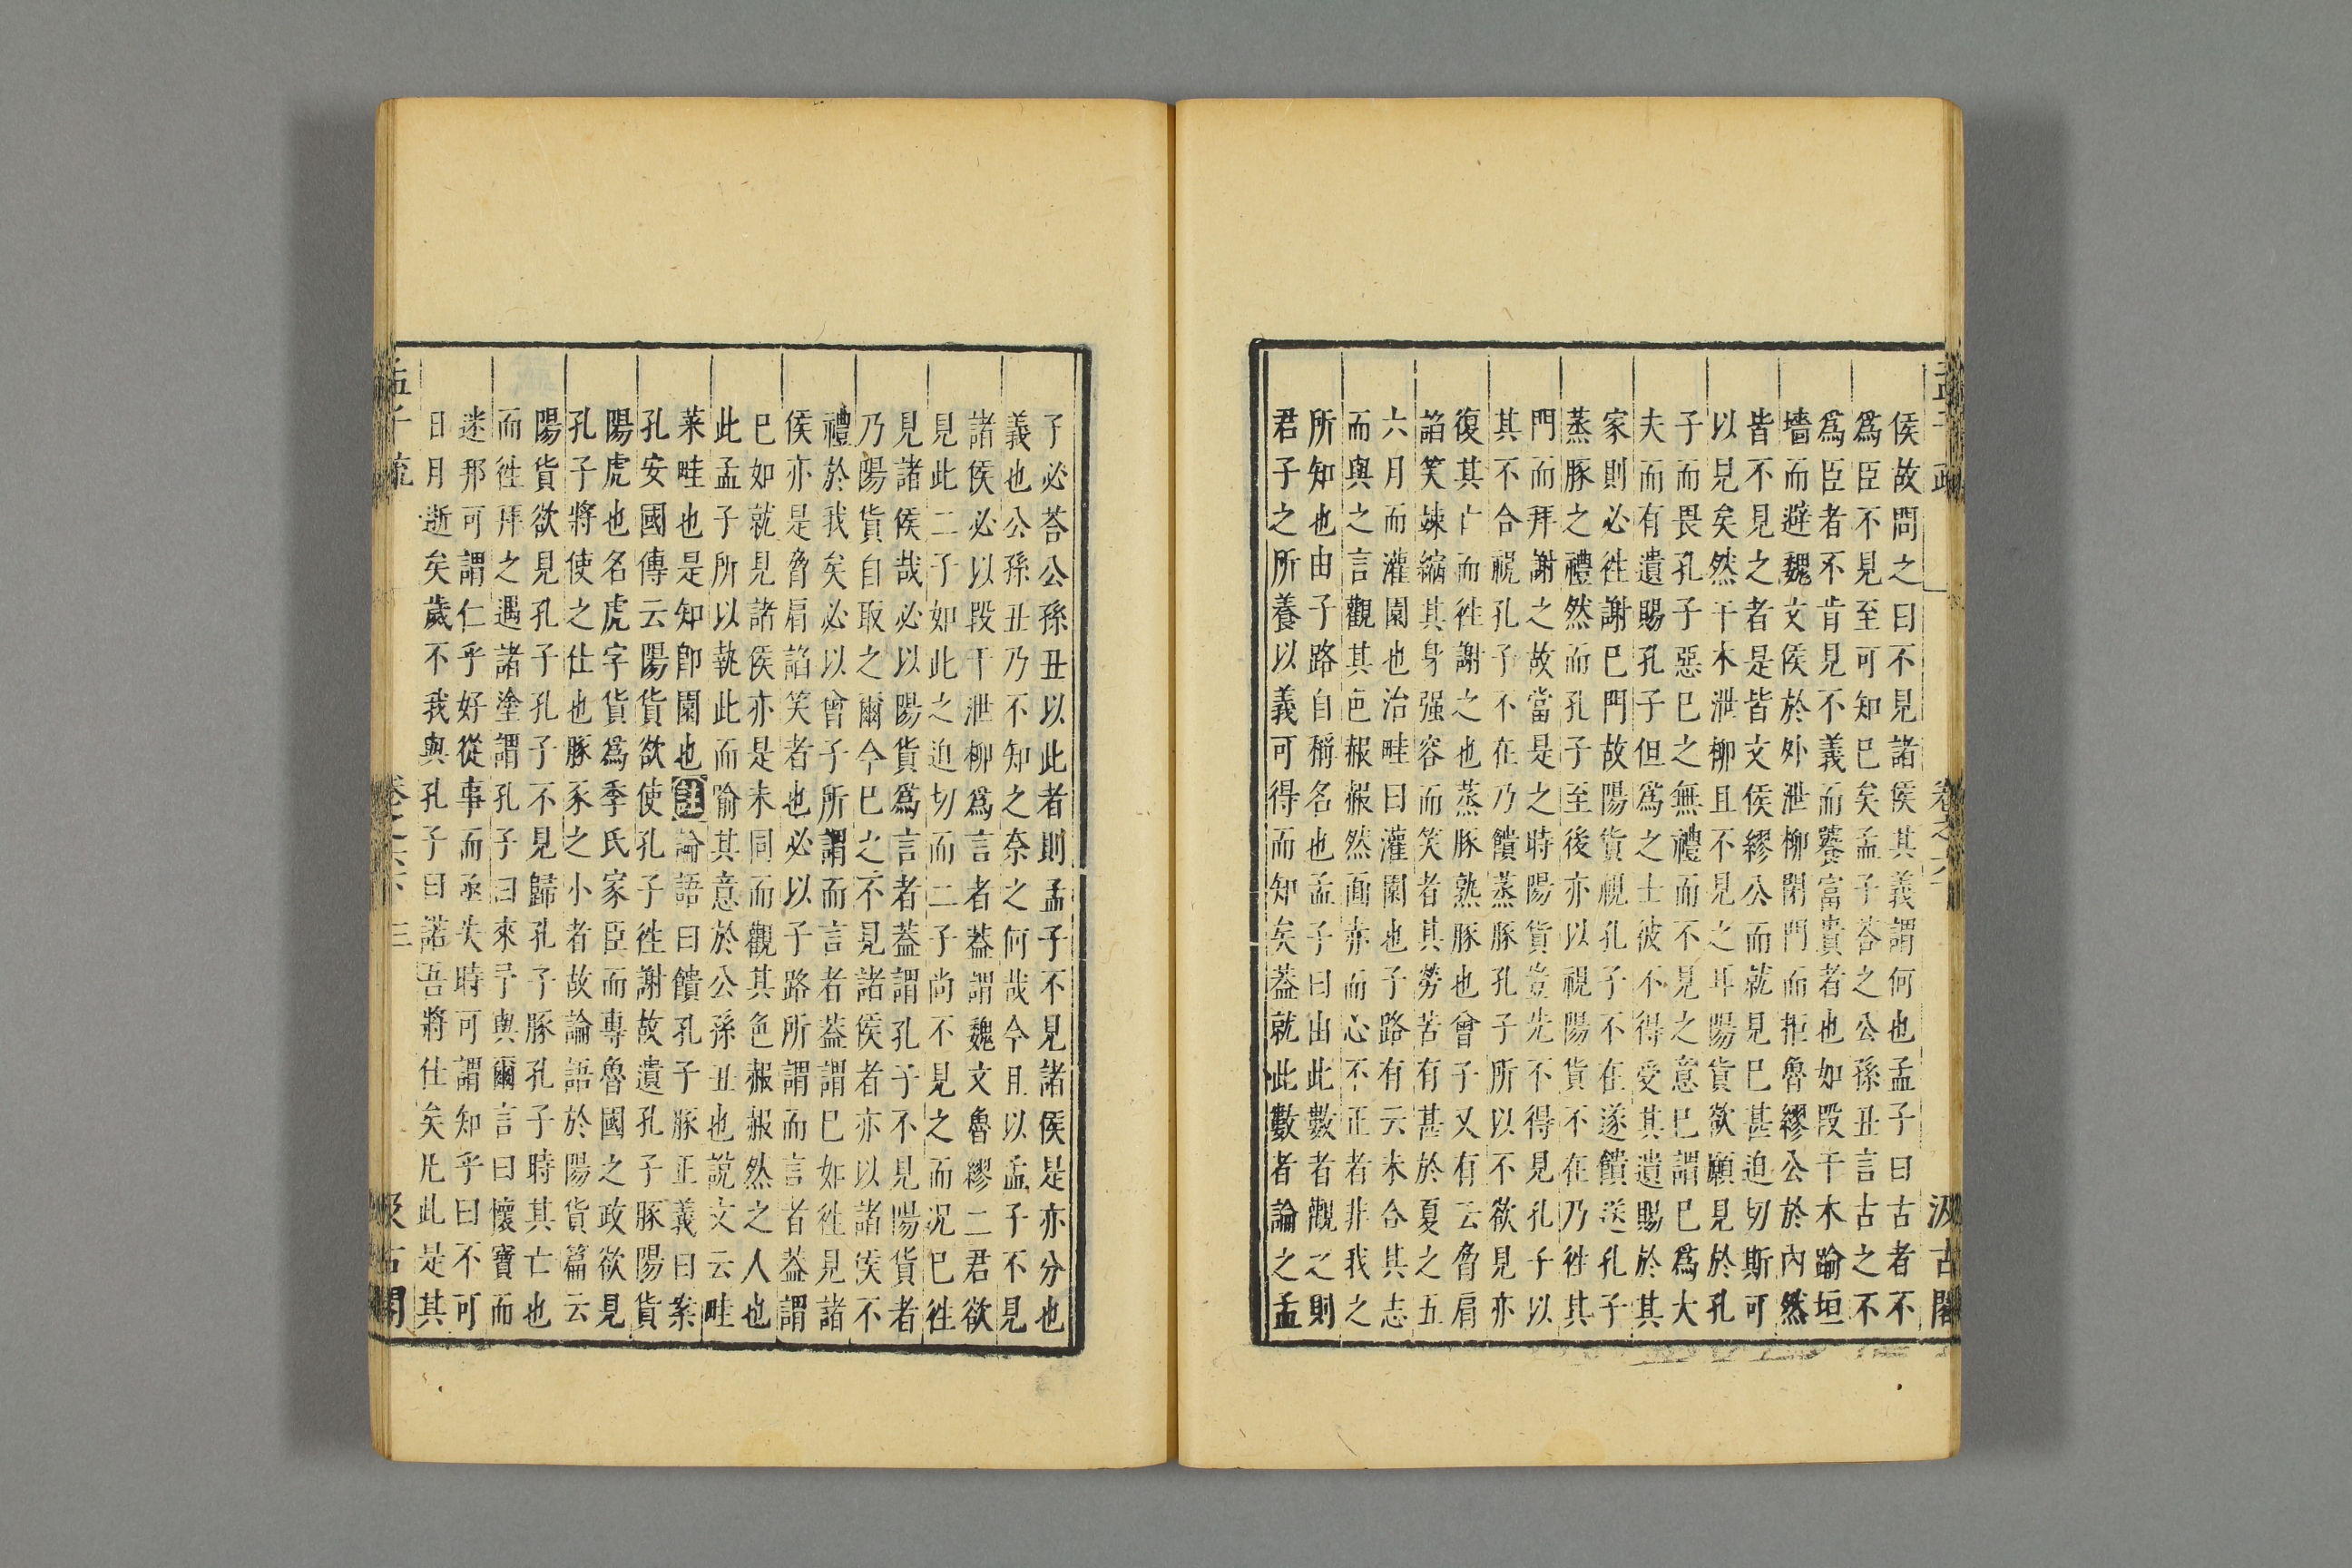 孟子疏
卷之六
汲古閣
侯故問之曰不見諸侯其義謂何也孟子曰古者不
爲臣不見至可知已矣孟子荅之公孫丑言古之不
爲臣者不肯見不義而饕富貴者也如段干木踰垣
墻而避魏文侯於外泄柳閉門而拒魯繆公於內然
皆不見之者是皆文侯繆公而就見巳甚迫切斯可
以見矣然干木泄柳且不見之耳陽貨欲願見於孔
子而畏孔子惡巳之無禮而不見之意巳謂巳爲大
夫而有遺賜孔子但爲之士彼不得受其遺賜於其
家則必徃謝巳門故陽貨視孔子不在遂饋送孔子
蒸豚之禮然而孔子至後亦以視陽貨不在乃徃其
門而拜謝之故當是之時陽貨豈先不得見孔子以
其不合視孔子不在乃饋蒸豚孔子所以不欲見亦
復其亡而徃謝之也蒸豚熟豚也曾子又有云脅肩
諂笑竦縮其身强容而笑者其勞苦有甚於夏之五
六月而灌園也治畦曰灌園也子路有云未合其志
而與之言觀其色赧赧然面亦而心不正者非我之
所知也由子路自稱名也孟子曰由此數者觀之則
君子之所養以義可得而知矣葢就此數者論之孟
子必荅公孫丑以此者則孟子不見諸侯是亦分也
義也公孫丑乃不知之奈之何哉今且以孟子不見
諸侯必以段干泄柳爲言者葢謂魏文魯繆二君欲
見此二子如此之迫切而二子尚不見之而况巳徃
見諸侯哉必以陽貨爲言者葢謂孔子不見陽貨者
乃陽貨自取之爾今巳之不見諸侯者亦以諸侯不
禮於我矣必以曾子所謂而言者葢謂巳如徃見諸
侯亦是脅肩諂笑者也必以子路所謂而言者葢謂
巳如就見諸侯亦是未同而觀其色赧赧然之人也
此孟子所以執此而喻其意於公孫丑也說文云畦
菜畦也是知卽園也註論語曰饋孔子豚正義曰案
孔安國傳云陽貨欲使孔子徃謝故遺孔子豚陽貨
陽虎也名虎字貨爲季氏家臣而專魯國之政欲見
孔子將使之仕也豚豕之小者故論語於陽貨篇云
陽貨欲見孔子孔子不見歸孔子豚孔子時其亡也
而徃拜之遇諸塗謂孔子曰來予與爾言曰懷寶而
迷邦可謂仁乎好從事而亟失時可謂知乎曰不可
日月逝矣歲不我與孔子曰諾吾將仕矣凡此是其
孟子疏
卷之六下 三
汲古閣